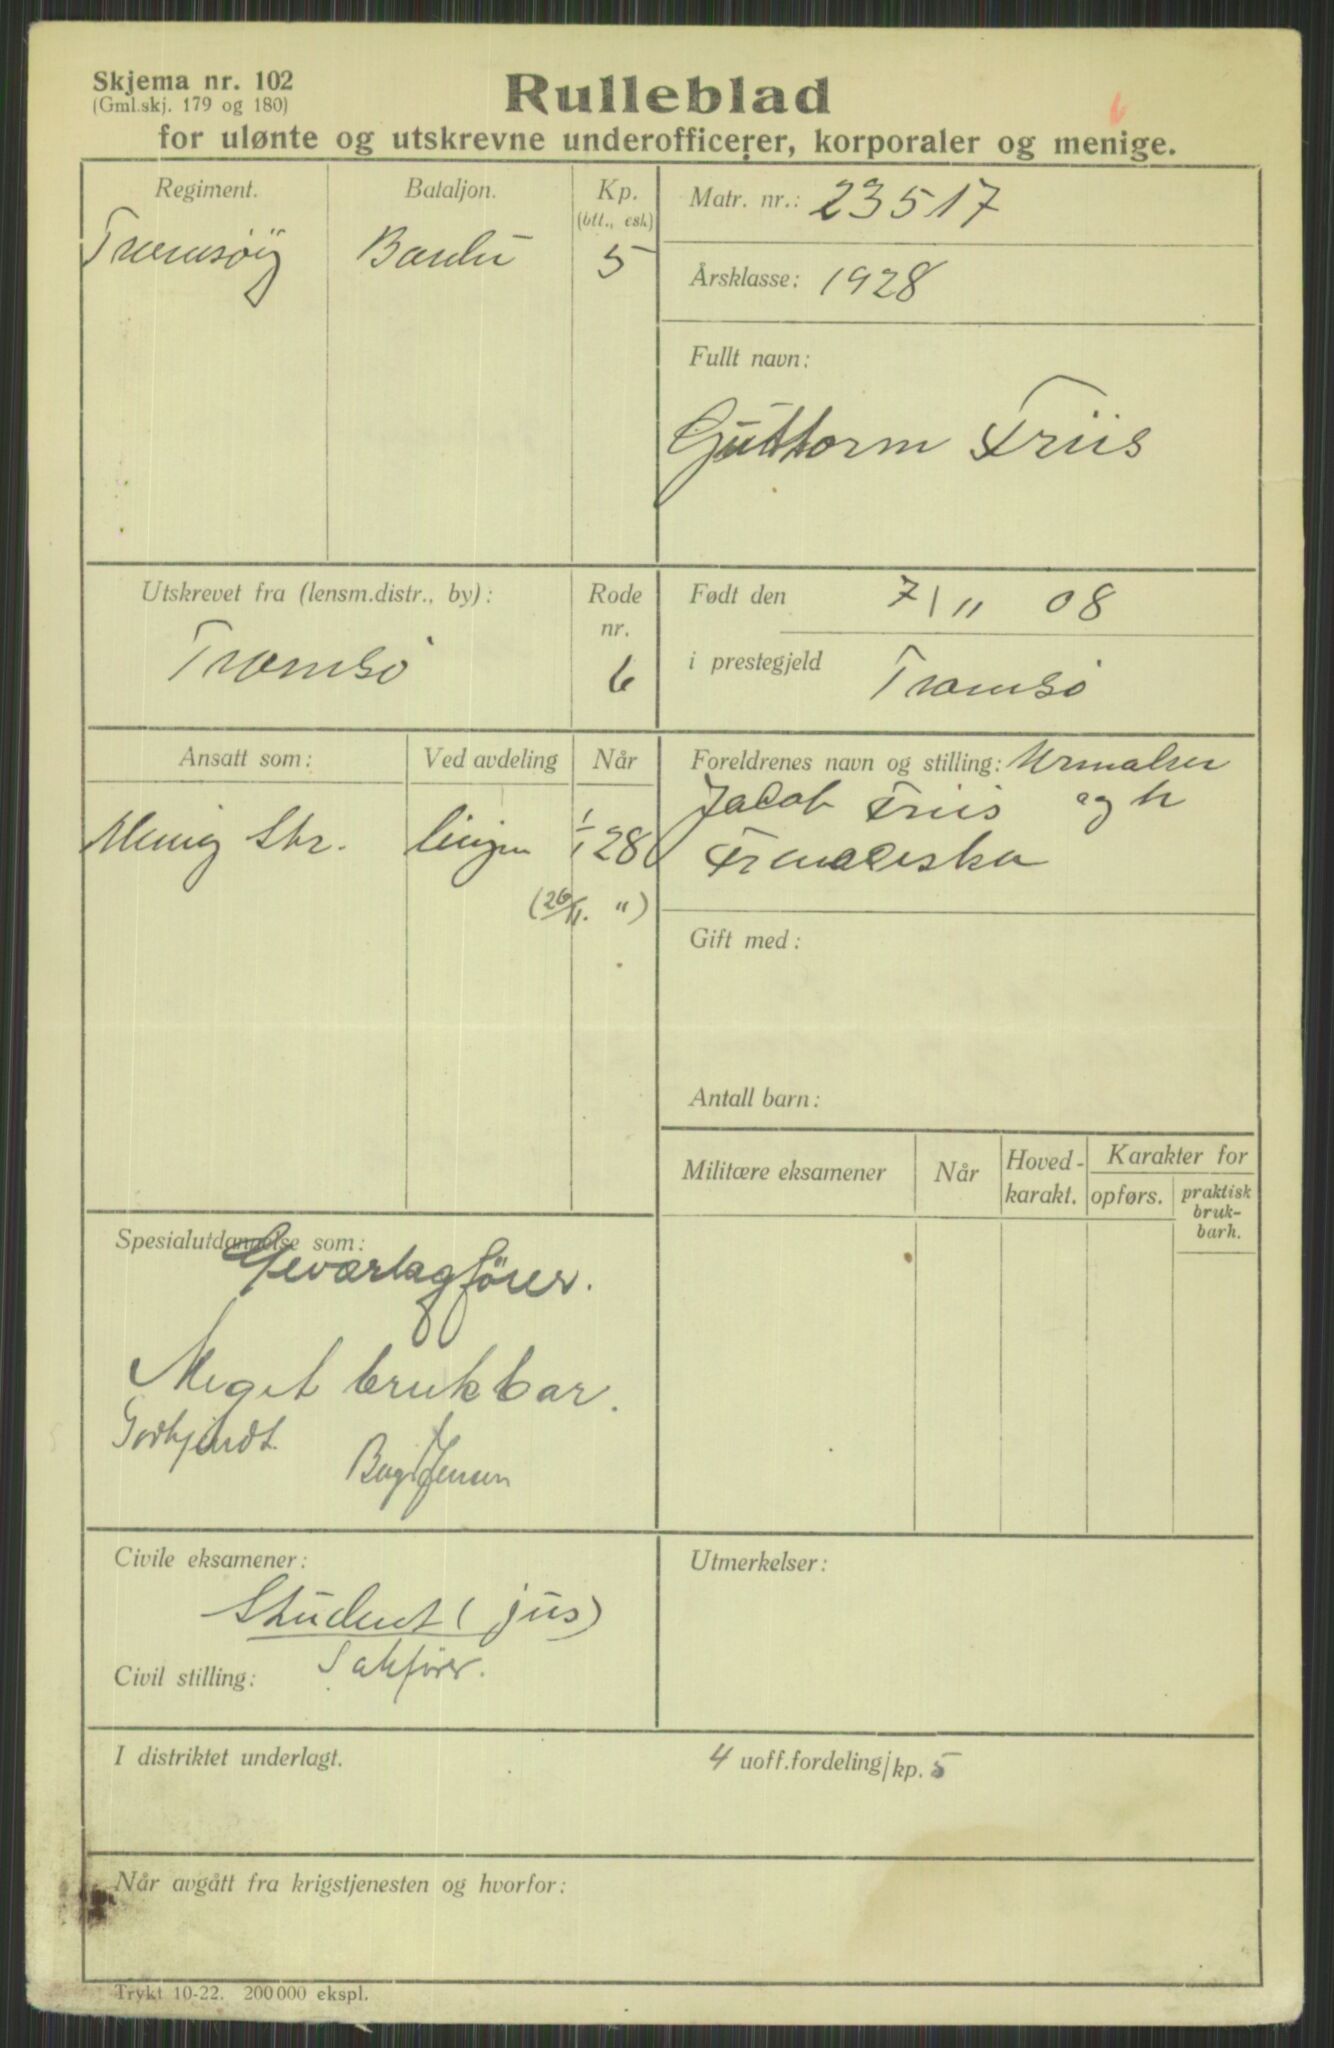 Skjema nr. 102
(Gml.skj. 179 og 180)
Rulleblad
6
for ulønte og utskrevne underofficerer, korporaler og menige.
Regiment.
Bataljon.
Kp.
(btt., esk)
Matr. nr.: 23517
5
Årsklasse: 1928
Fullt navn:
Guttorm Friis
Utskrevet fra (lensm.distr., by):
Tromsö
Rode
nr.
6
Født den 7/11 08
i prestegjeld Tromsö
Ansatt som:
Ved avdeling
Når
Menig Str.
lingen
1/1 28
(26/11. ")
Foreldrenes navn og stilling: Urmaker
Jacob Friis og h
Franciska
Gift med:
Antall barn:
Militære eksamener
Når
Hoved-
karakt.
Karakter for
opførs.
praktisk
bruk-
barh.
Spesialutdannelse som:
Geværlagförer.
Meget brukbar.
Godkjendt.
Civile eksamener:
Student (jus)
Civil stilling: Sakförer.
Utmerkelser:
I distriktet underlagt.
4 uoff.fordeling/kp. 5
Når avgått fra krigstjenesten og hvorfor:
Trykt 10-22. 200 000 ekspl.